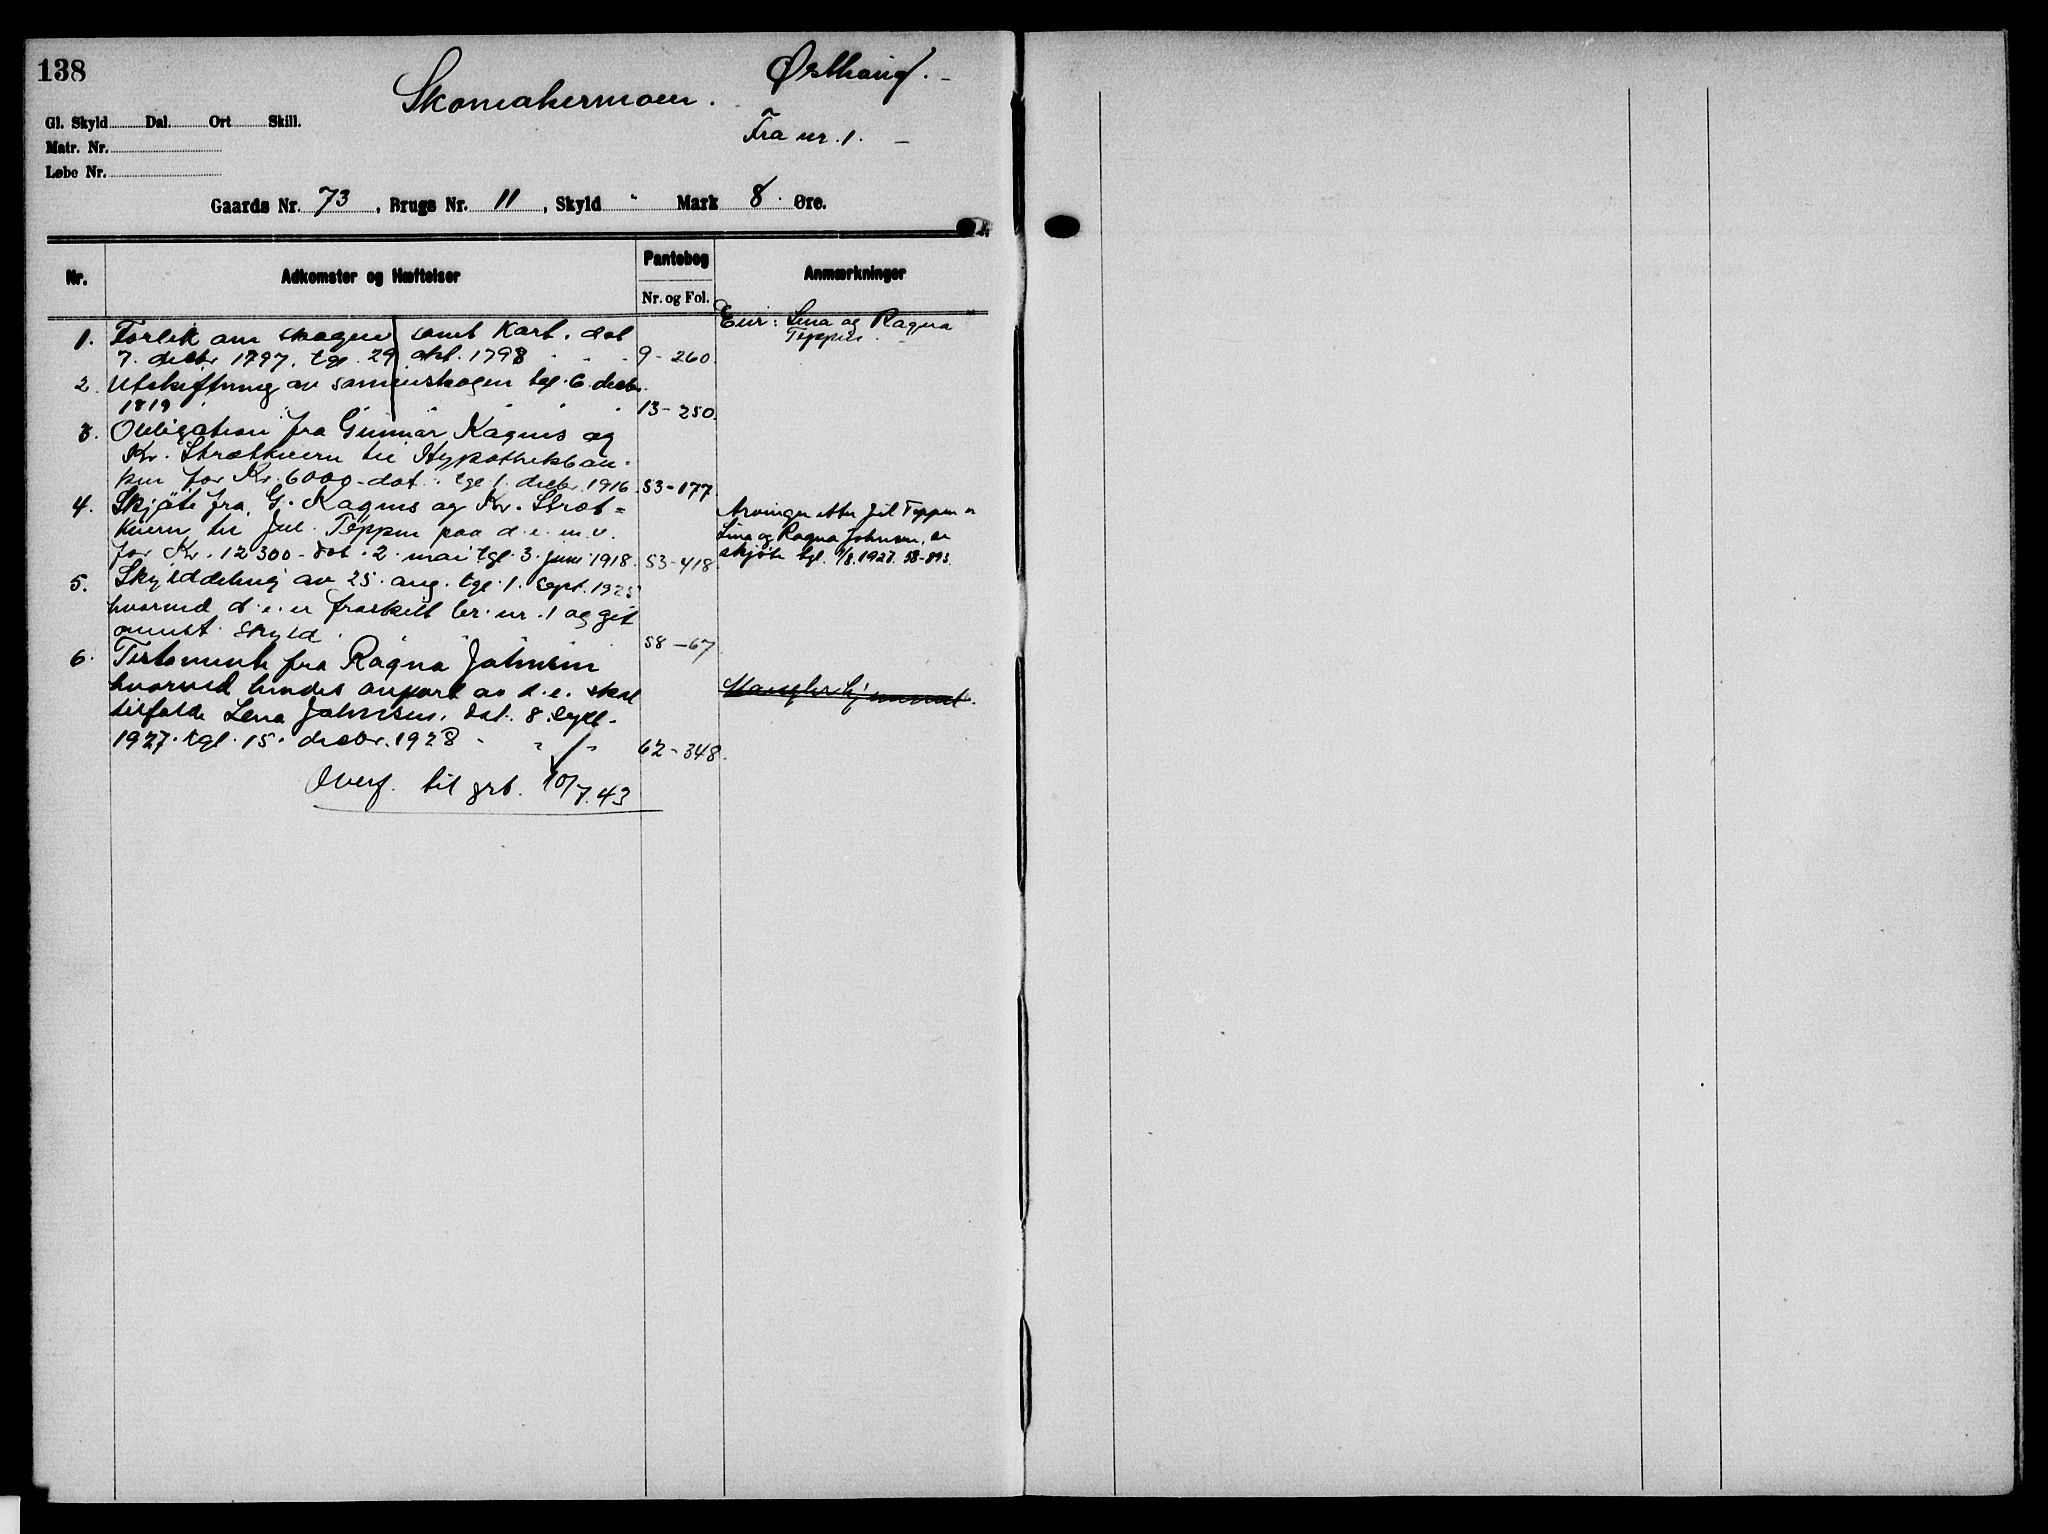 138
Skomakermoen. Østhaug. -
Gl. Skyld Dal. Ort Skill.
Fra nr. 1. -
Matr. Nr.
Løbe Nr.
Gaards Nr. 73, Brugs Nr. 11, Skyld " Mark 8 Øre.
Nr. Adkomster og Hæftelser Pantebog Anmærkninger
Nr. og Fol.
Eier: Lina og Ragna
Teppen.
1. Forlik om skogen samt Kart. dat
7. decbr 1797. tgl. 29 okt. 1798 9-260.
2. Utskiftning av sameieskogen tgl. 6. decbr.
1819 13-250.
3. Obligation fra Gunnar Kagnes og
Kr. Strætkvern til Hypothekban-
ken for Kr. 6000- dat. tgl. 1. decbr. 1916 53-177.
4. Skjöte fra G. Kagnes og Kr. Stræt=
kvern til Jul. Teppen paa d. e. m. v.
for Kr. 12300- dat. 2. mai tgl. 3. juni 1918. 53-418
Arvinger etter Jul Teppen er
Lina og Ragna Johnsen, se
skjöte tgl. 9/8. 1927. 58-893.
5. Skylddeling av 25. aug. tgl. 1. sept. 1925
hvorved d. e. er fraskilt br. nr. 1 og git
anmst. skyld. 58-67
6. Testamente fra Ragna Johnsen
hvorved hendes anpart av d. e. skal
tilfalde Lena Johnsen. dat. 8. sept.
1927. tgl. 15. decbr. 1928 62-348.
Overf. til grb. 10/7.43